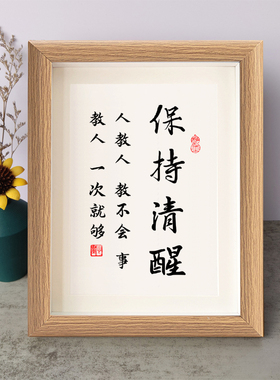 保持清醒
人教人 教不会 事
教人 一次就够